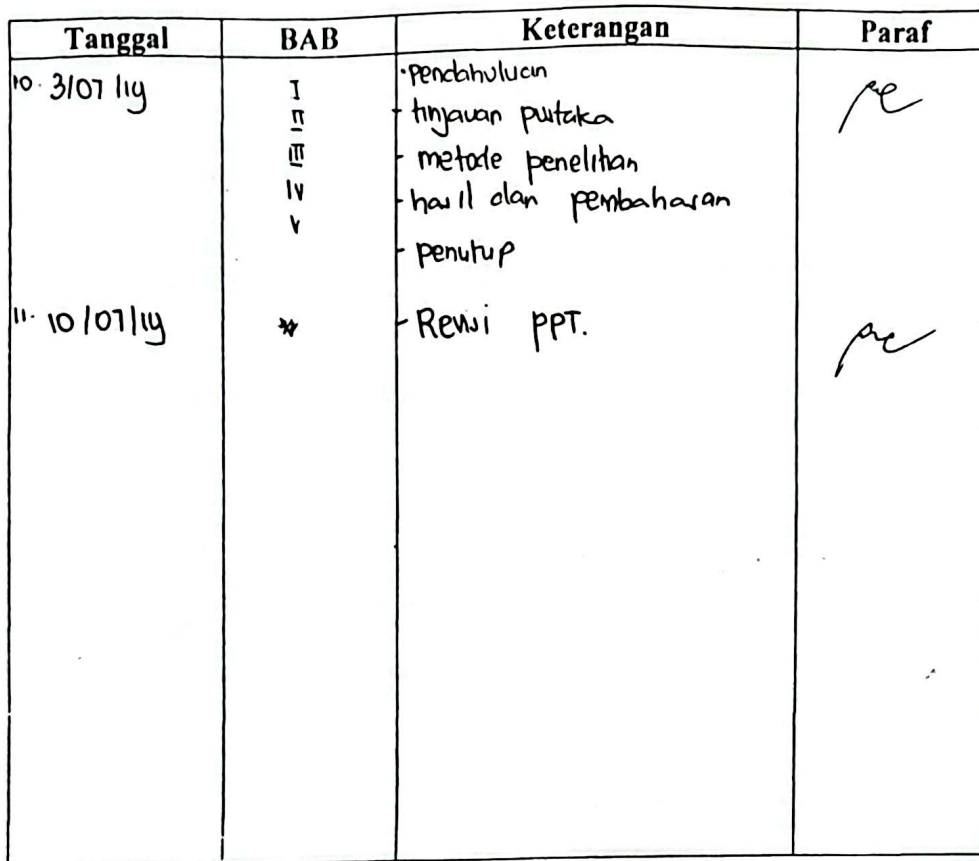 Tanggal BAB Keterangan Paraf
10. 3/07/19 I - pendahuluan
II - tinjauan pustaka
III - metode penelitian
IV - hasil dan pembahasan
V - penutup
11. 10/07/19 - Revisi PPT.